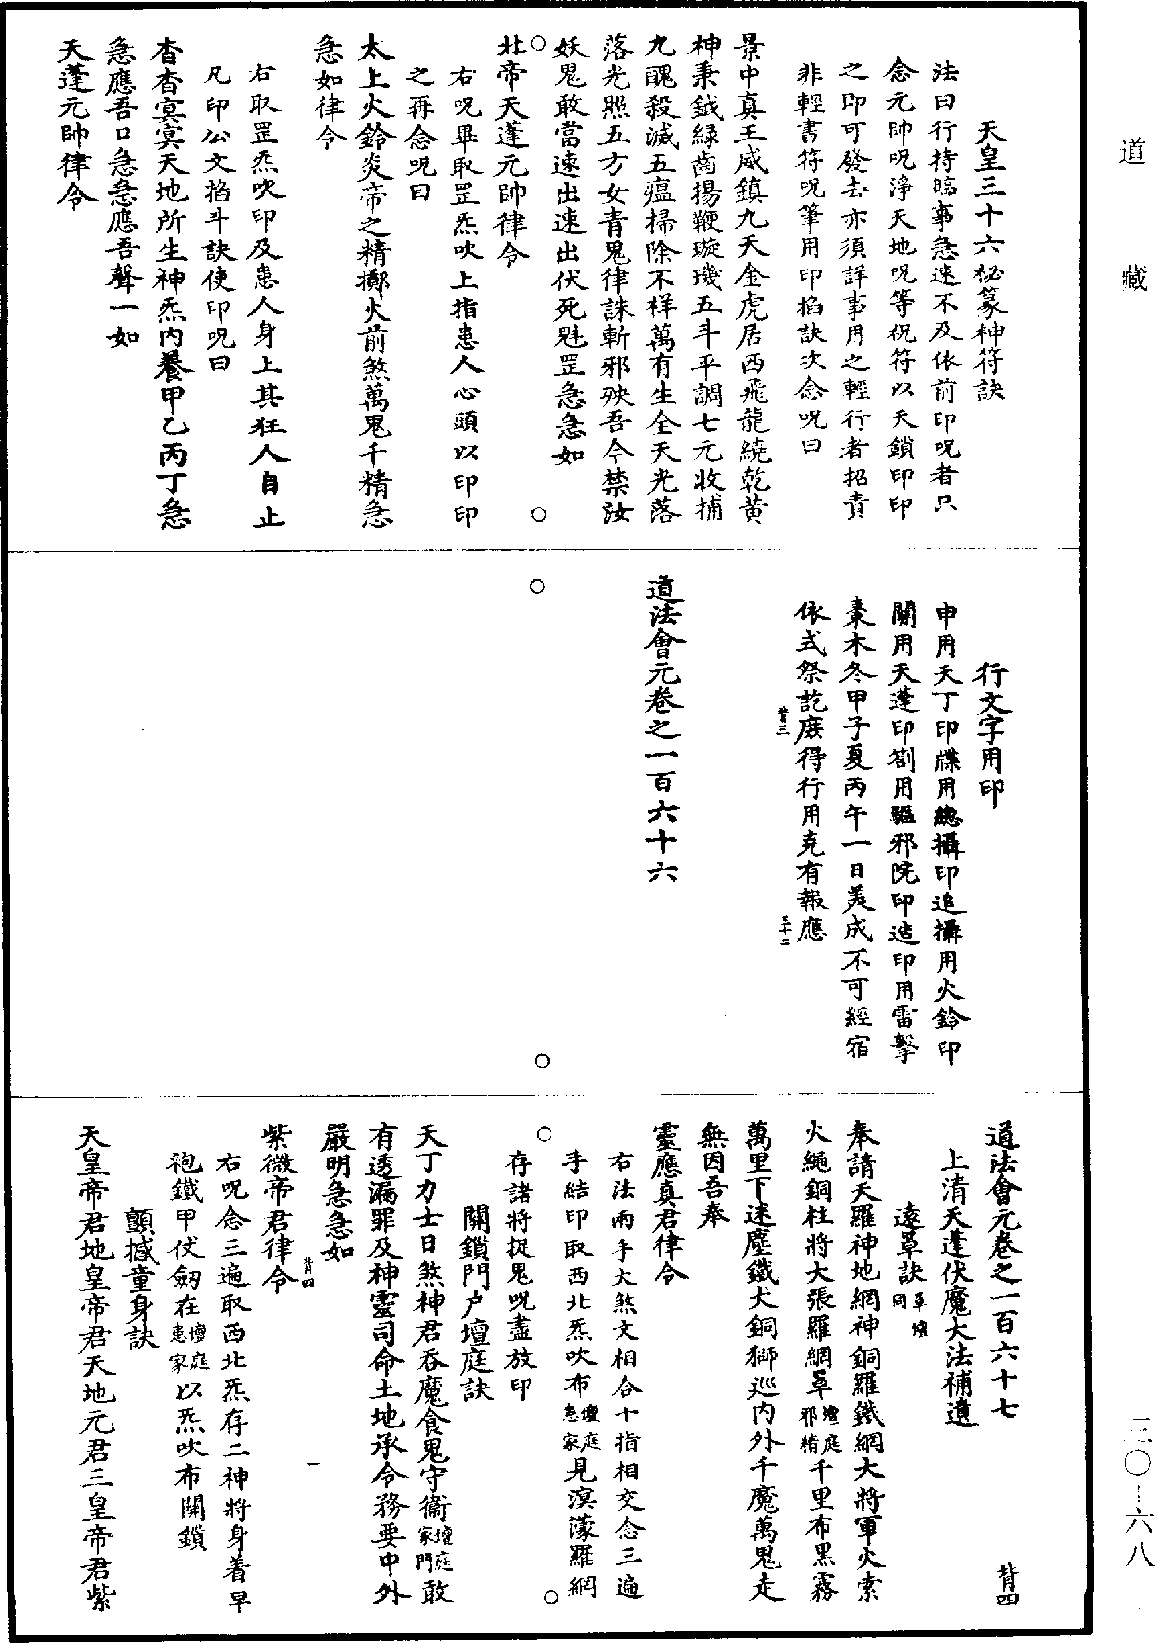 道藏
天皇三十六秘篆神符訣
法曰行持臨事急速不及依前印呪者只
念元帥呪淨天地呪等祝符以天鎖印印
之即可發去亦須詳事用之輕行者招責
非輕書符呪筆用印掐訣次念呪曰
景中真王威鎮九天金虎居西飛龍繞乾黃
神秉鉞綠齒揚鞭璇璣五斗平調七元收捕
九醜殺滅五瘟掃除不祥萬有生全天光落
落光照五方女青鬼律誅斬邪殃吾今禁汝
妖鬼敢當速出速出伏死魁罡急急如
北帝天蓬元帥律令
右呪畢取罡炁吹上指患人心頭以印印
之再念呪曰
太上火鈴炎帝之精擲火前煞萬鬼千精急
急如律令
右取罡炁吹印及患人身上其狂人自止
凡印公文掐斗訣使印呪曰
杳杳冥冥天地所生神炁內養甲乙丙丁急
急應吾口急急應吾聲一如
天蓬元帥律令
行文字用印
申用天丁印牒用總攝印追攝用火鈴印
關用天蓬印劄用驅邪院印造印用雷擊
棗木冬甲子夏丙午一日美成不可經宿
依式祭訖庶得行用克有報應
背三
三十二
道法會元卷之一百六十六
道法會元卷之一百六十七
背四
上清天蓬伏魔大法補遺
遠罩訣罩壇同
奉請天羅神地網神銅羅鐵網大將軍火索
火繩銅柱將大張羅網罩壇庭邪精千里布黑霧
萬里下迷塵鐵犬銅獅巡內外千魔萬鬼走
無因吾奉
靈應真君律令
右法兩手大煞文相合十指相交念三遍
手結印取西北炁吹布壇庭患家見溟濛羅網
存諸將捉鬼呪盡放印
關鎖門戶壇庭訣
天丁力士日煞神君吞魔食鬼守衞壇庭家門敢
有透漏罪及神靈司命土地承令務要中外
嚴明急急如
背四
紫微帝君律令
右呪念三遍取西北炁存二神將身着早
袍鐵甲仗劒在壇庭患家以炁吹布關鎖
顫撼童身訣
天皇帝君地皇帝君天地元君三皇帝君紫
一
三〇--六八